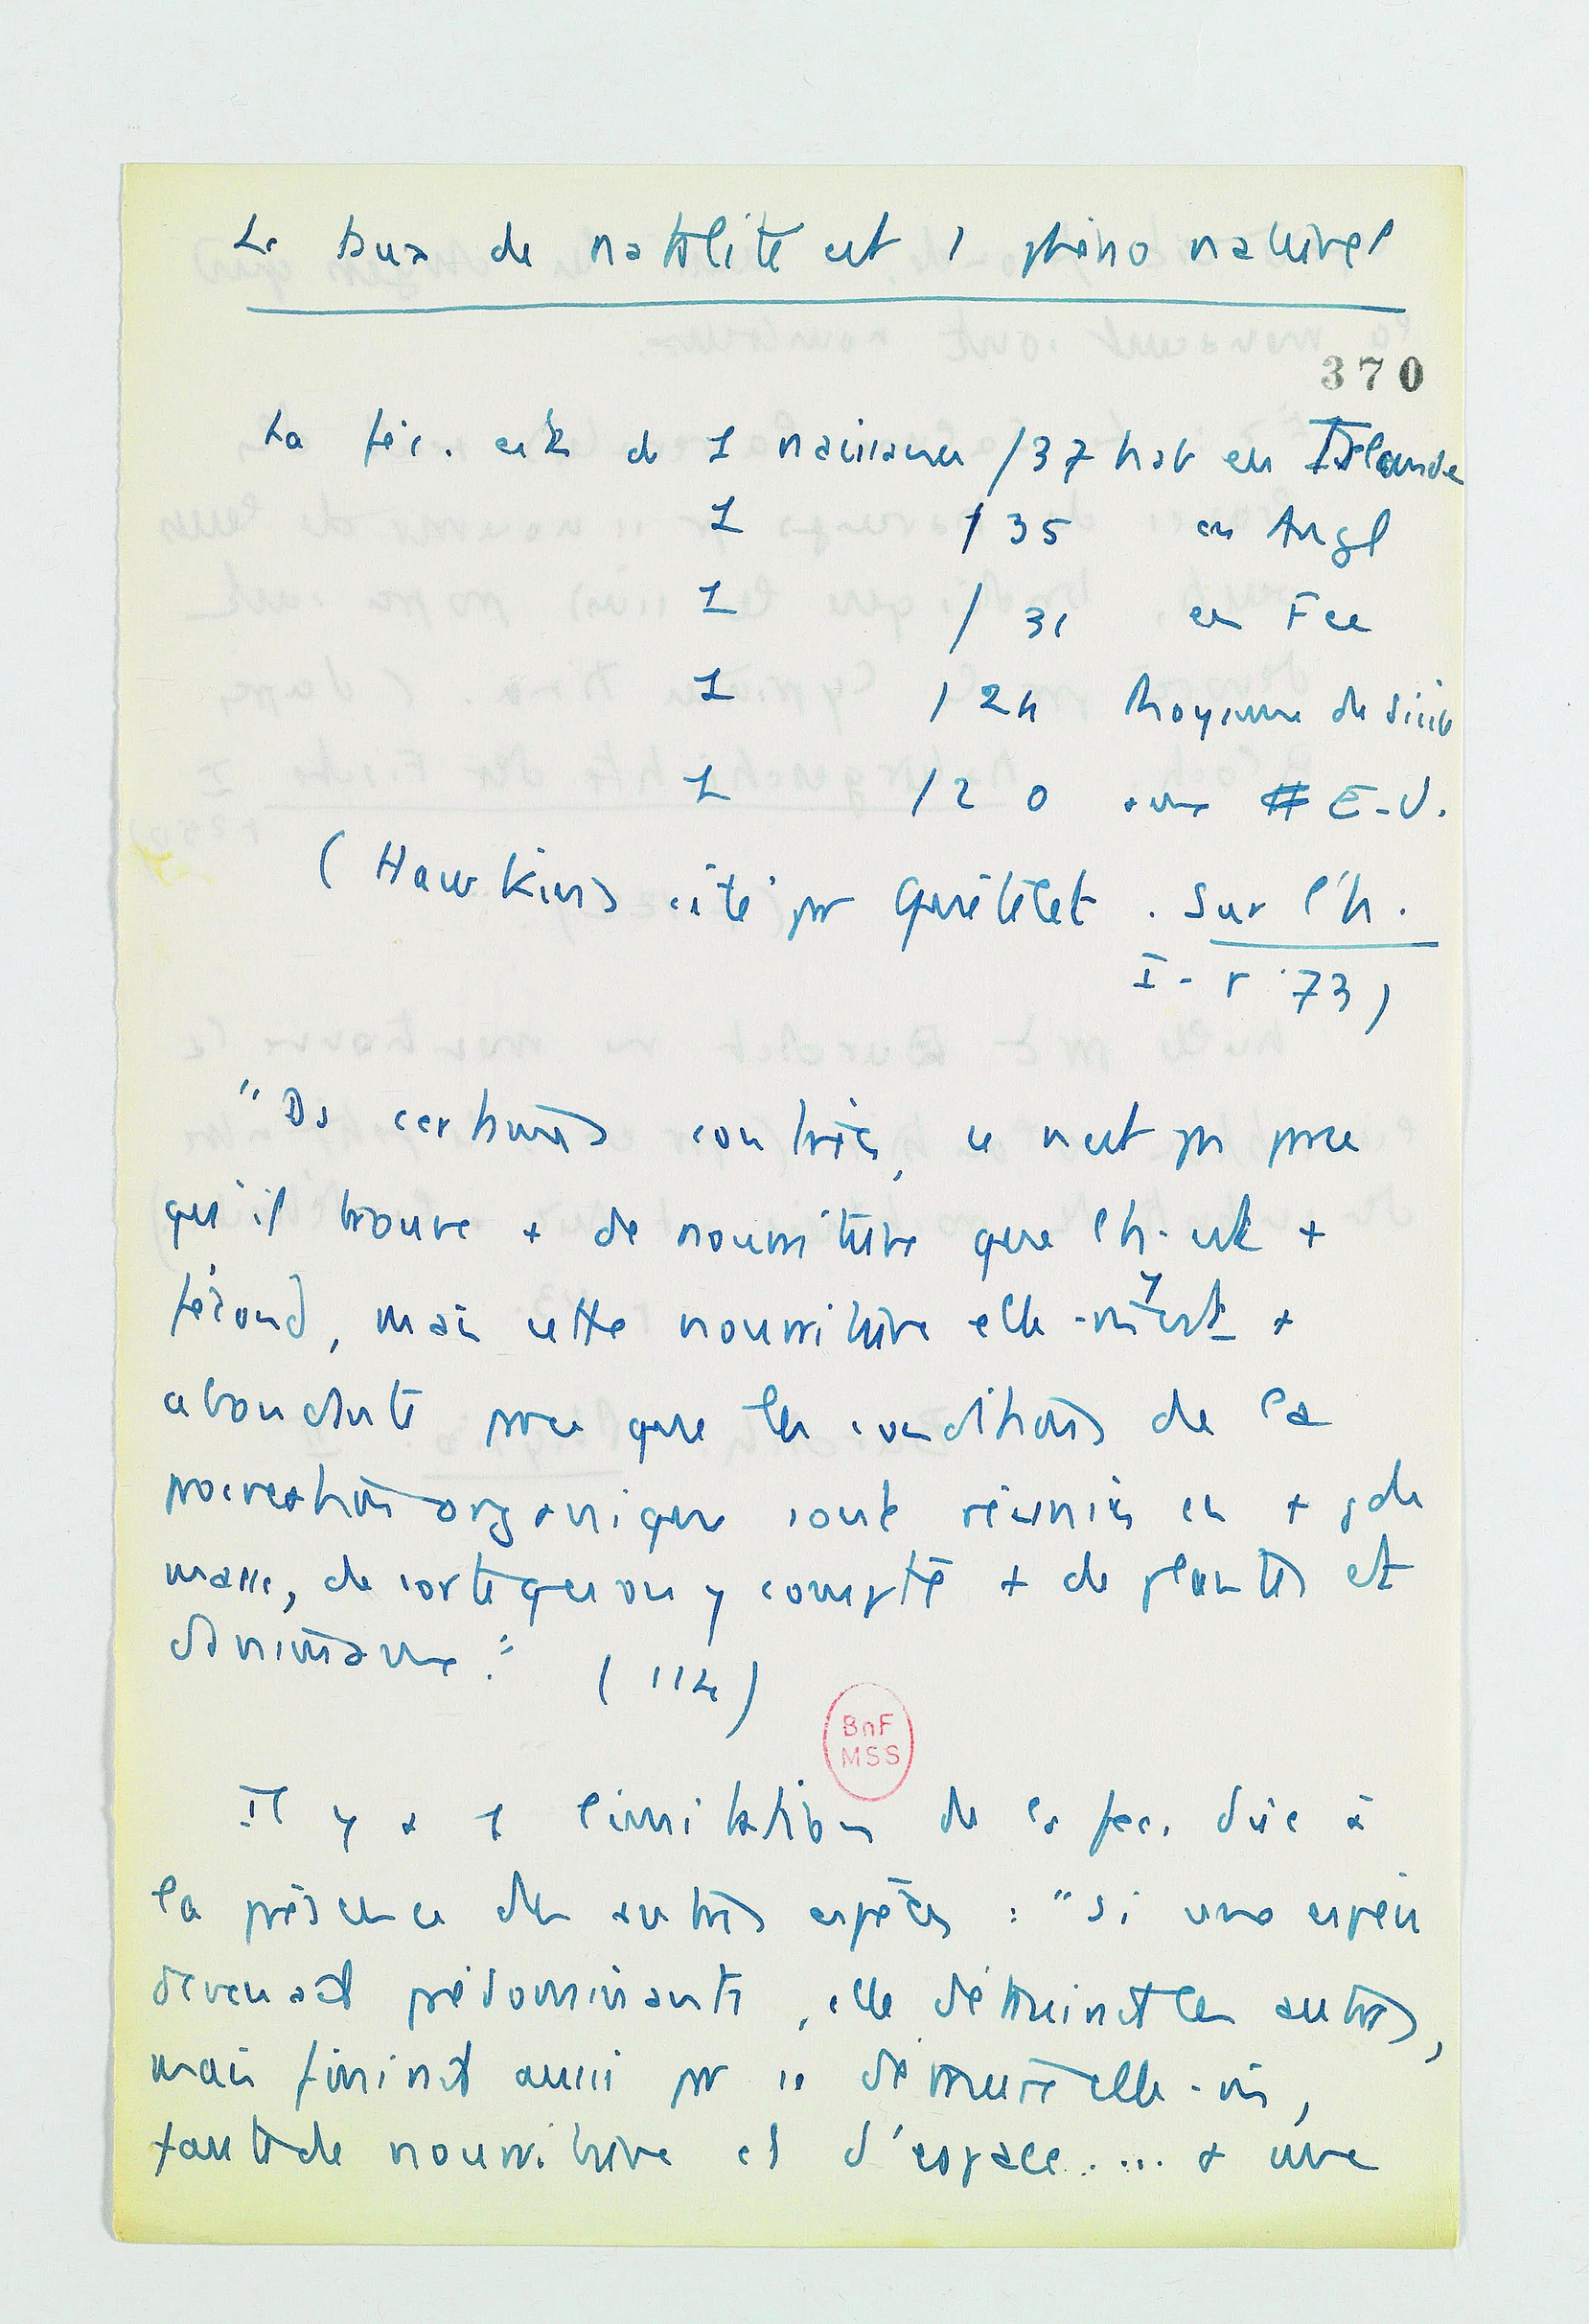 Le taux de natalité est 1 phéno naturel
370
La féc. est de 1 naissance /37 hab en Islande
1 /35 en Angl
1 / 31 en Fce
1 / 24 Royaume de Sicile
1 / 20 aux E-U.
(Hawkins cité pr Quételet. Sur l'h.
I - p 73)
"Ds certains contrées, ce n'est pas prce
qu'il trouve + de nourriture que l'h. est +
fécond, mais cette nourriture elle-m y est +
abondante prce que les conditions de la
procréation organique sont réunies en + gde
masse, de sorte que on y compte + de plantes et
d'animaux." (114)
BnF
MSS
Il y a 1 limitation de la fec. due à
la présence des autres espèces : "Si une espèce
devenait prédominante, elle détruirait les autres,
mais finirait aussi pr se détruire elle-m,
faute de nourriture et d'espace.... a une